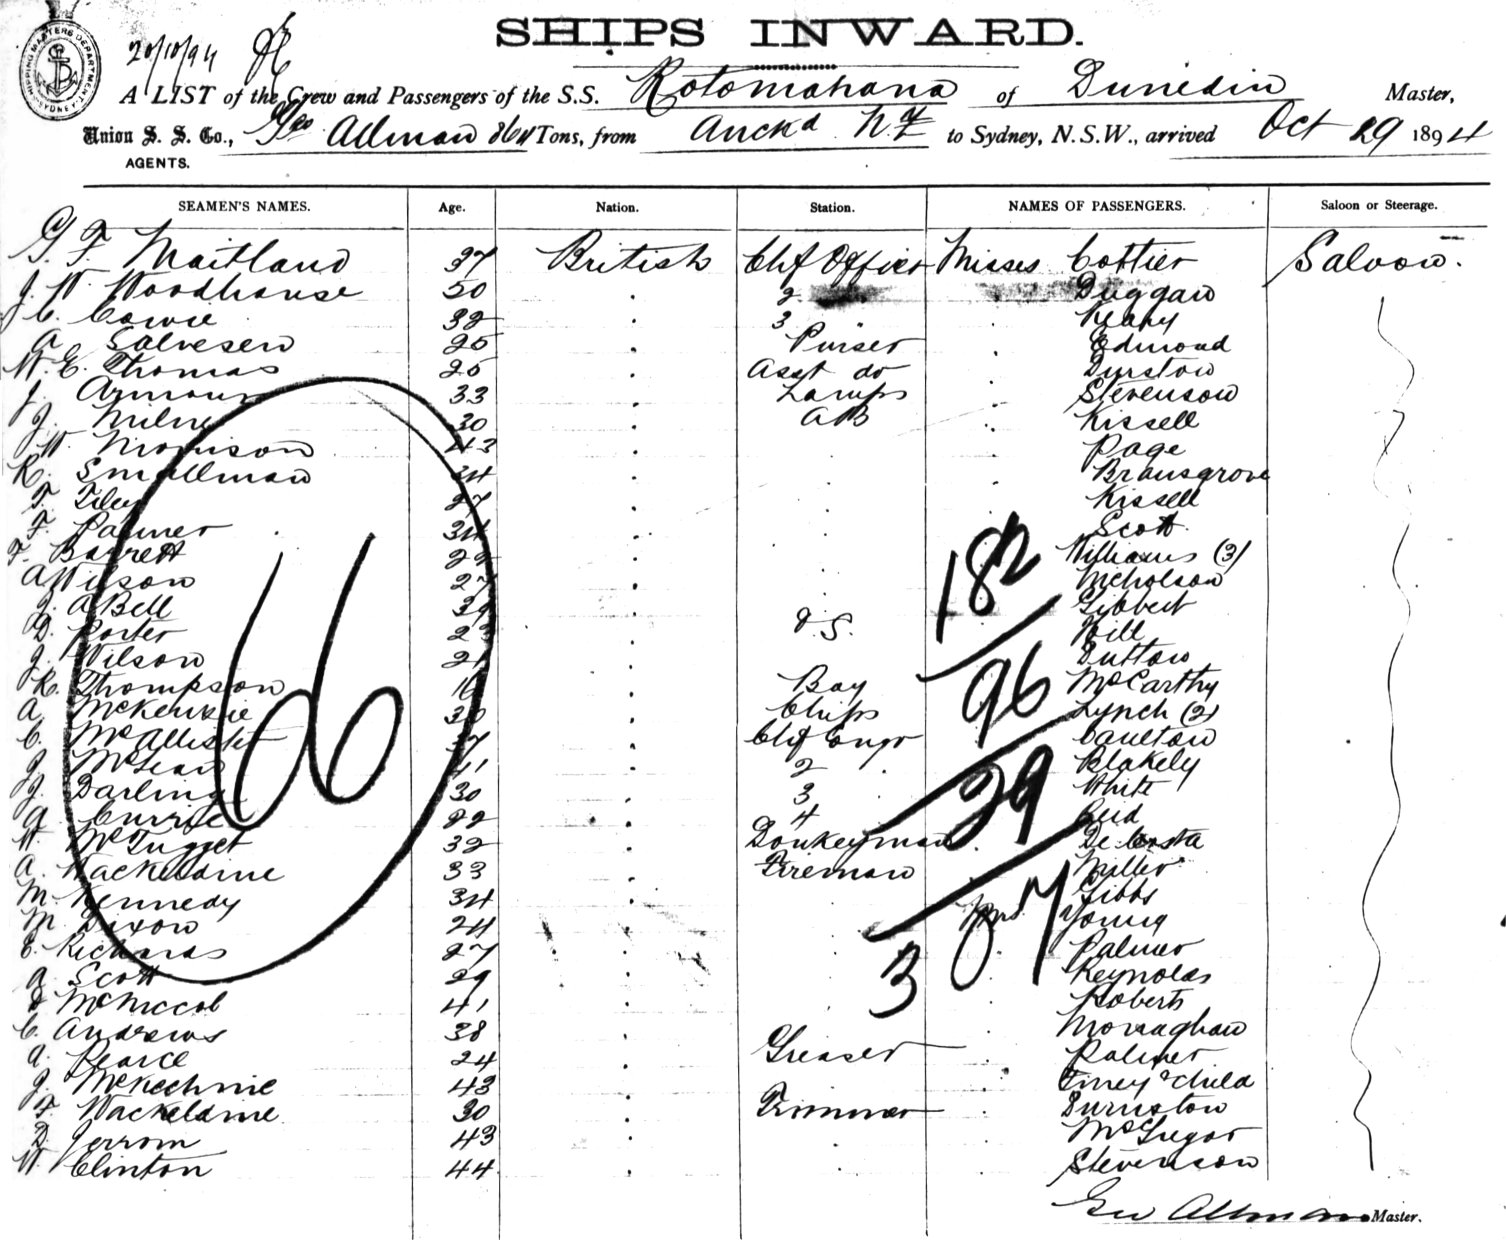 SHIPPING MASTERS DEPARTMENT
SHIPS INWARD.
A LIST of the Crew and Passengers of the S.S. Rotomahana of Dunedin Master,
Union S. S. Co., Geo Allman 864 Tons, from Auckd N.Z to Sydney, N.S.W., arrived Oct 29 1894
AGENTS.
SEAMEN'S NAMES. Age. Nation. Station. NAMES OF PASSENGERS. Saloon or Steerage.
G. F. Maitland 37 British Chf Officer Misses Cottier Saloon.
J. W. Woodhouse 50 2 Duggan
J C. Cowie 32 3 Keary
A Salvesen 25 Purser Edmond
W. E. Thomas 25 Asst do Durston
J. Armour 33 Lamps Stevenson
J. Milne 30 AB Kissell
W. Morrison 43 Page
R. Smallman 34 Bransgrove
F. Tiley 27 Kissell
F. Palmer 34 Scott
F. Barrett 22 Williams (3)
A Wilson 27 Nicholson
J. A Bell 39 Gibbert
D. Porter 23 O.S. Hill
J. Wilson 21 Dutton
R. Thompson 16 Boy McCarthy
A McKenzie 30 Chips Lynch (2)
C. McAllister 37 Chf Engr Caulton
J. McLean 41 2 Blakely
J. Darling 30 3 White
A. Currie 22 4 Reid
W. 32 Donkeyman De Costa
A. Wackeldine 33 Fireman Miller
M. Kennedy 34 Gibbs
M. Dixon 24 Mrs Young
E. Richards 27 Palmer
A Scott 29 Keynolds
McNiccol 41 Roberts
C. Andrews 38 Monaghan
A. Pearce 24 Greaser Palmer
J. McKechnie 43 Finey & child
F Wackeldine 30 Trimmer Durnston
D. Jerrom 43 McGregor
W. Clinton 44 Stevenson
66
182
96
29
3
Geo Allman Master.